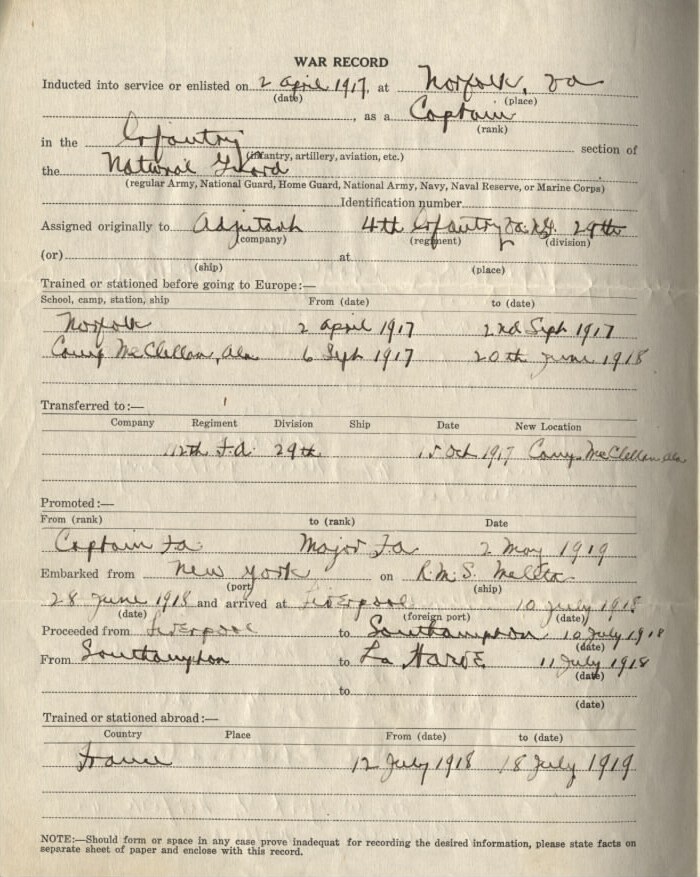 WAR RECORD
Inducted into service or enlisted on 2 April 1917, at Norfolk, Va
(date) (place)
, as a Captain
(rank)
in the Infantry section of
(infantry, artillery, aviation, etc.)
the National Guard
(regular Army, National Guard, Home Guard, National Army, Navy, Naval Reserve, or Marine Corps)
Identification number
Assigned originally to Adjutant 4th Infantry Va. 29th
(company) (regiment) (division)
(or) at
(ship) (place)
Trained or stationed before going to Europe:—
School, camp, station, ship From (date) to (date)
Norfolk 2 April 1917 2nd Sept 1917
Camp McClellan, Ala 6 Sept 1917 20th June 1918
Transferred to:—
Company Regiment Division Ship Date New Location
112th F.A. 29th 15 Oct 1917 Camp McClellan, Ala
Promoted:—
From (rank) to (rank) Date
Captain Fa Major Fa 2 May 1919
Embarked from New York on R.M.S.
(port) (ship)
28 June 1918 and arrived at Liverpool 10 July 1918
(date) (foreign port) (date)
Proceeded from Liverpool to Southampton 10 July 1918
(date)
From Southampton to La Havre 11 July 1918
(date)
to
(date)
Trained or stationed abroad:—
Country Place From (date) to (date)
France 12 July 1918 18 July 1919
NOTE:—Should form or space in any case prove inadequat for recording the desired information, please state facts on
separate sheet of paper and enclose with this record.